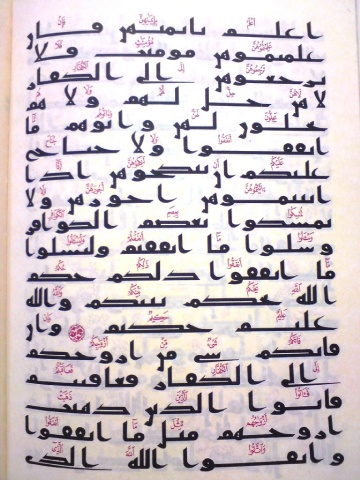 اعلم بايمنهن فان
علمتموهن مومنت فلا
ترجعوهن الى الكفار
لا هن حل لهم ولا هم
يحلون لهن واتوهم ما
انفقوا ولا جناح
عليكم ان تنكحوهن اذا
اتيتموهن اجورهن ولا
تمسكوا بعصم الكوافر
وسلوا ما انفقتم وليسلوا
ما انفقوا ذلكم حكم
الله يحكم بينكم والله
عليم حكيم وان
فاتكم شي من ازوجكم
الى الكفار فعاقبتم
فاتوا الذين ذهبت
ازوجهم مثل ما انفقوا
واتقوا الله الذي